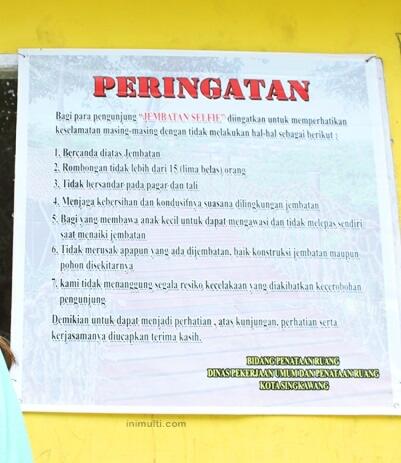 PERINGATAN
Bagi para pengunjung "JEMBATAN SELFIE" diingatkan untuk memperhatikan
keselamatan masing-masing dengan tidak melakukan hal-hal sebagai berikut :
1. Bercanda diatas Jembatan
2. Rombongan tidak lebih dari 15 (lima belas) orang
3. Tidak bersandar pada pagar dan tali
4. Menjaga kebersihan dan kondusifnya suasana dilingkungan jembatan
5. Bagi yang membawa anak kecil untuk dapat mengawasi dan tidak melepas sendiri
saat menaiki jembatan
6. Tidak merusak apapun yang ada dijembatan, baik konstruksi jembatan maupun
pohon disekitarnya
7. kami tidak menanggung segala resiko kecelakaan yang diakibatkan kecerobohan
pengunjung
Demikian untuk dapat menjadi perhatian , atas kunjungan, perhatian serta
kerjasamanya diucapkan terima kasih.
BIDANG PENATAAN RUANG
DINAS PEKERJAAN UMUM DAN PENATAAN RUANG
KOTA SINGKAWANG
inimulti.com